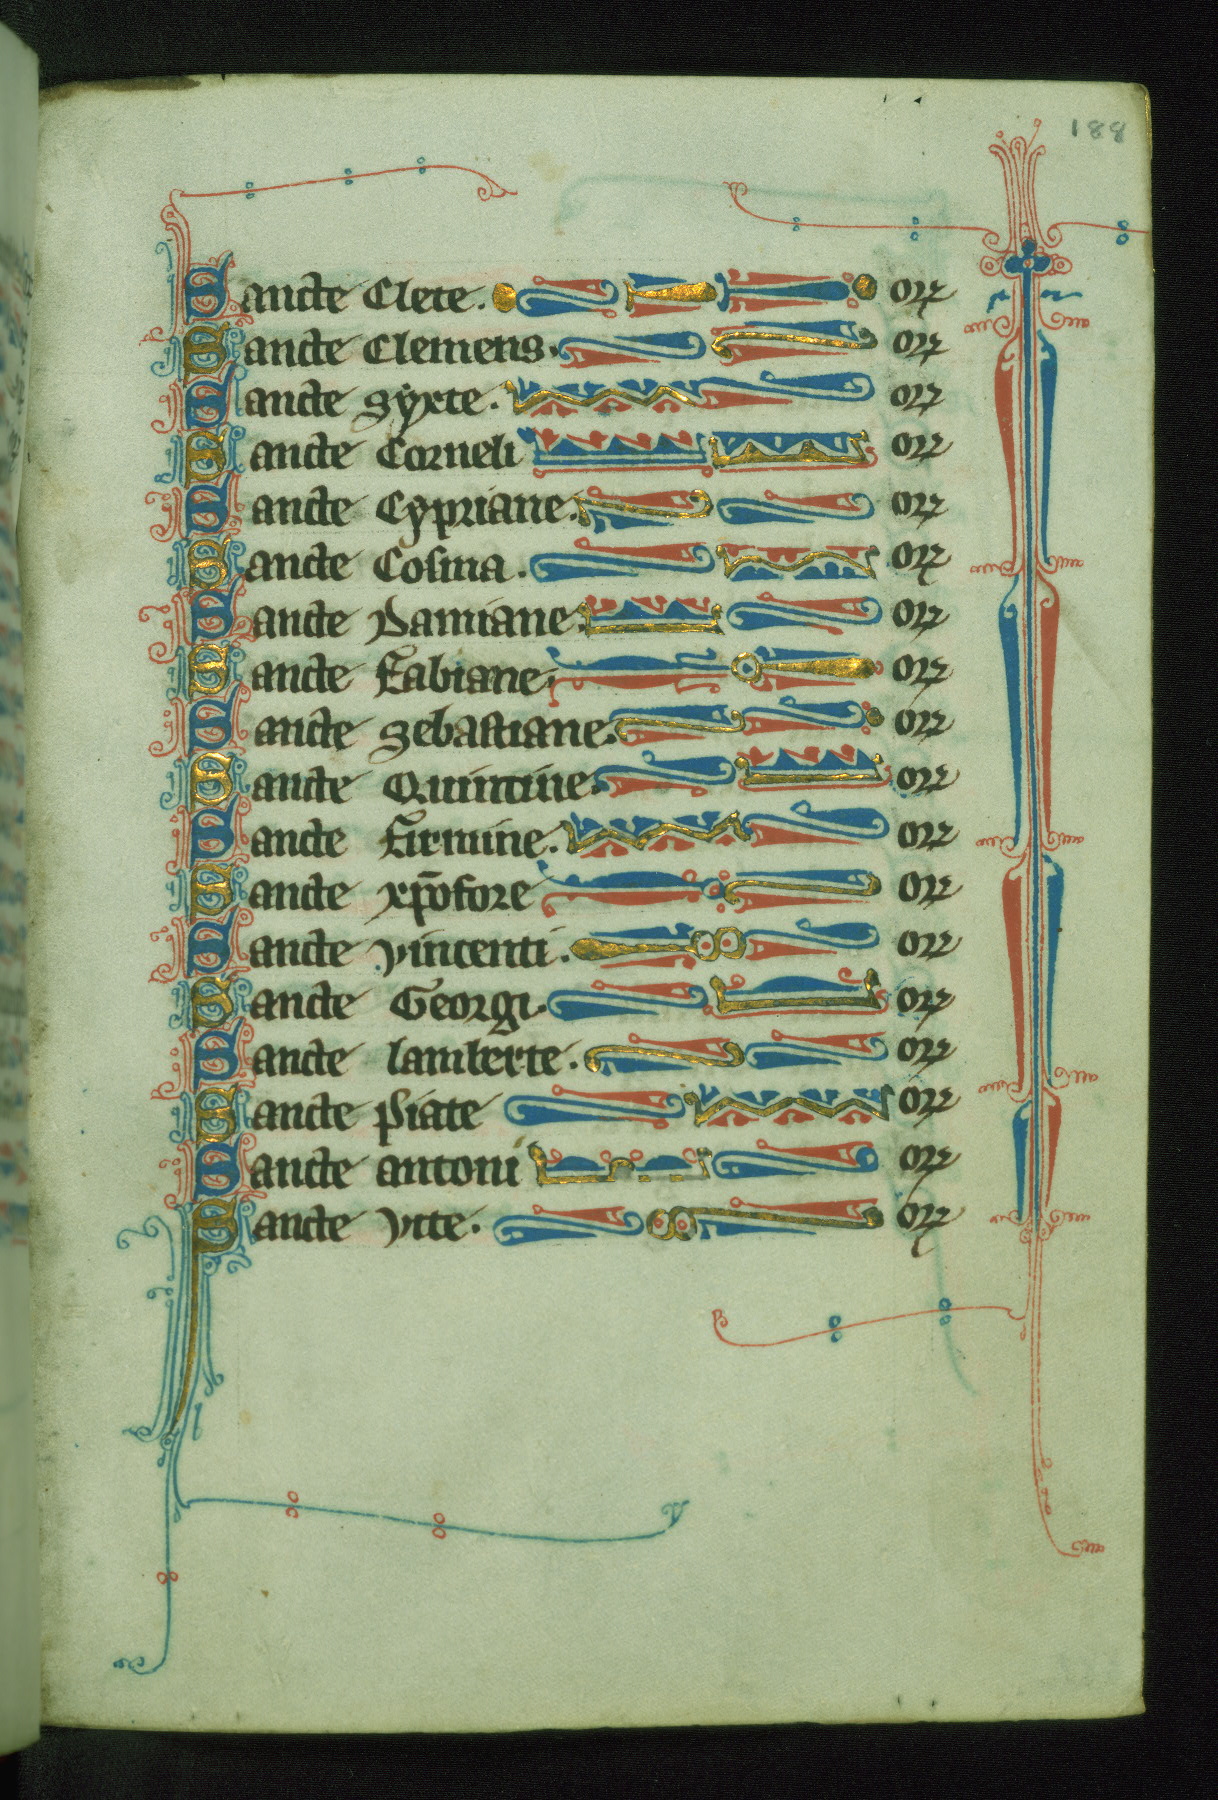 188
Sancte Clete. or
Sancte Clemens. or
Sancte syxte. or
Sancte Corneli or
Sancte Cypriane. or
Sancte Cosma. or
Sancte Damiane. or
Sancte Fabiane. or
Sancte sebastiane. or
Sancte Quintine. or
Sancte Firmine. or
Sancte xp̄ofore or
Sancte vincenti. or
Sancte Georgi. or
Sancte lamberte. or
Sancte piate or
Sancte antoni or
Sancte vite. or